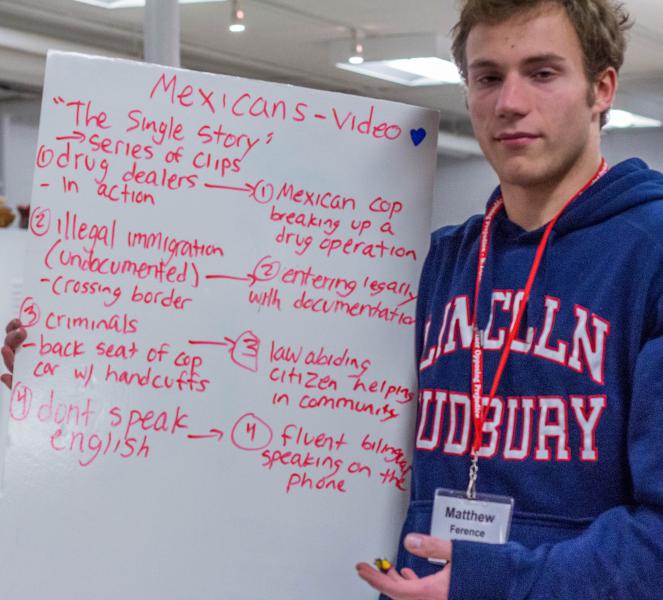 Mexicans-Video
"The Single Story"
→series of clips
① drug dealers →
- in action
② illegal immigration
(undocumented) →
-crossing border
③ criminals →
-back seat of cop
car w/ handcuffs
④ dont speak →
english
① Mexican cop
breaking up a
drug operation
② entering legally
with documentation
③ law abiding
citizen helping
in community
④ fluent bilingual
speaking on the
phone
LINCOLN
SUDBURY
Matthew
Ference